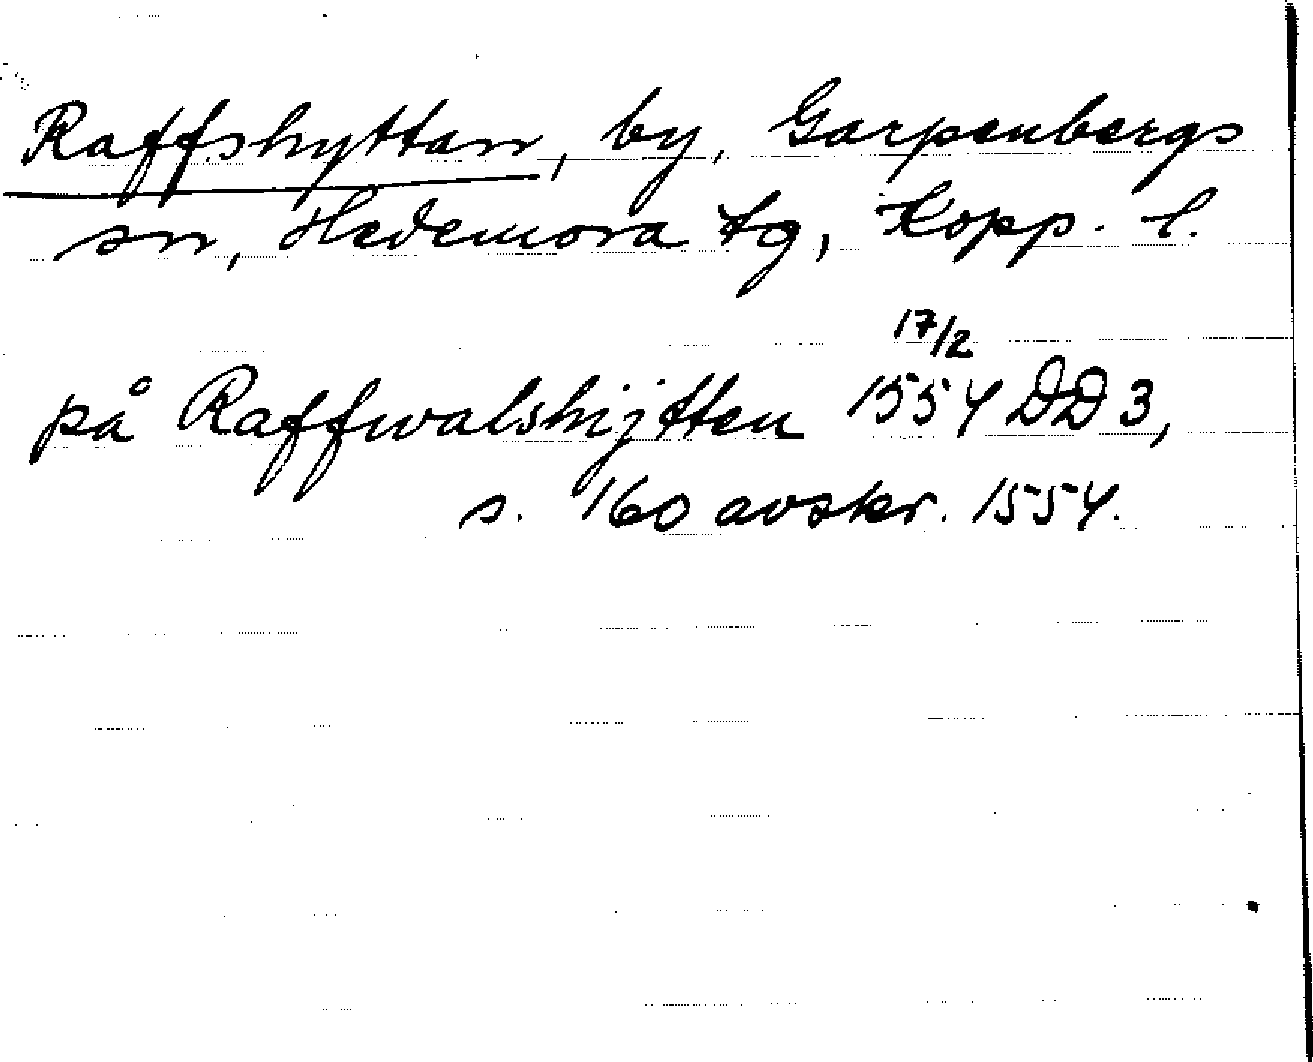 Raffshyttan, by, Garpenbergs
sn, Hedemora tg, Kopp. l.
17/2
på Raffwalshijtten 1554 DD 3,
s. 160 avskr. 1554.